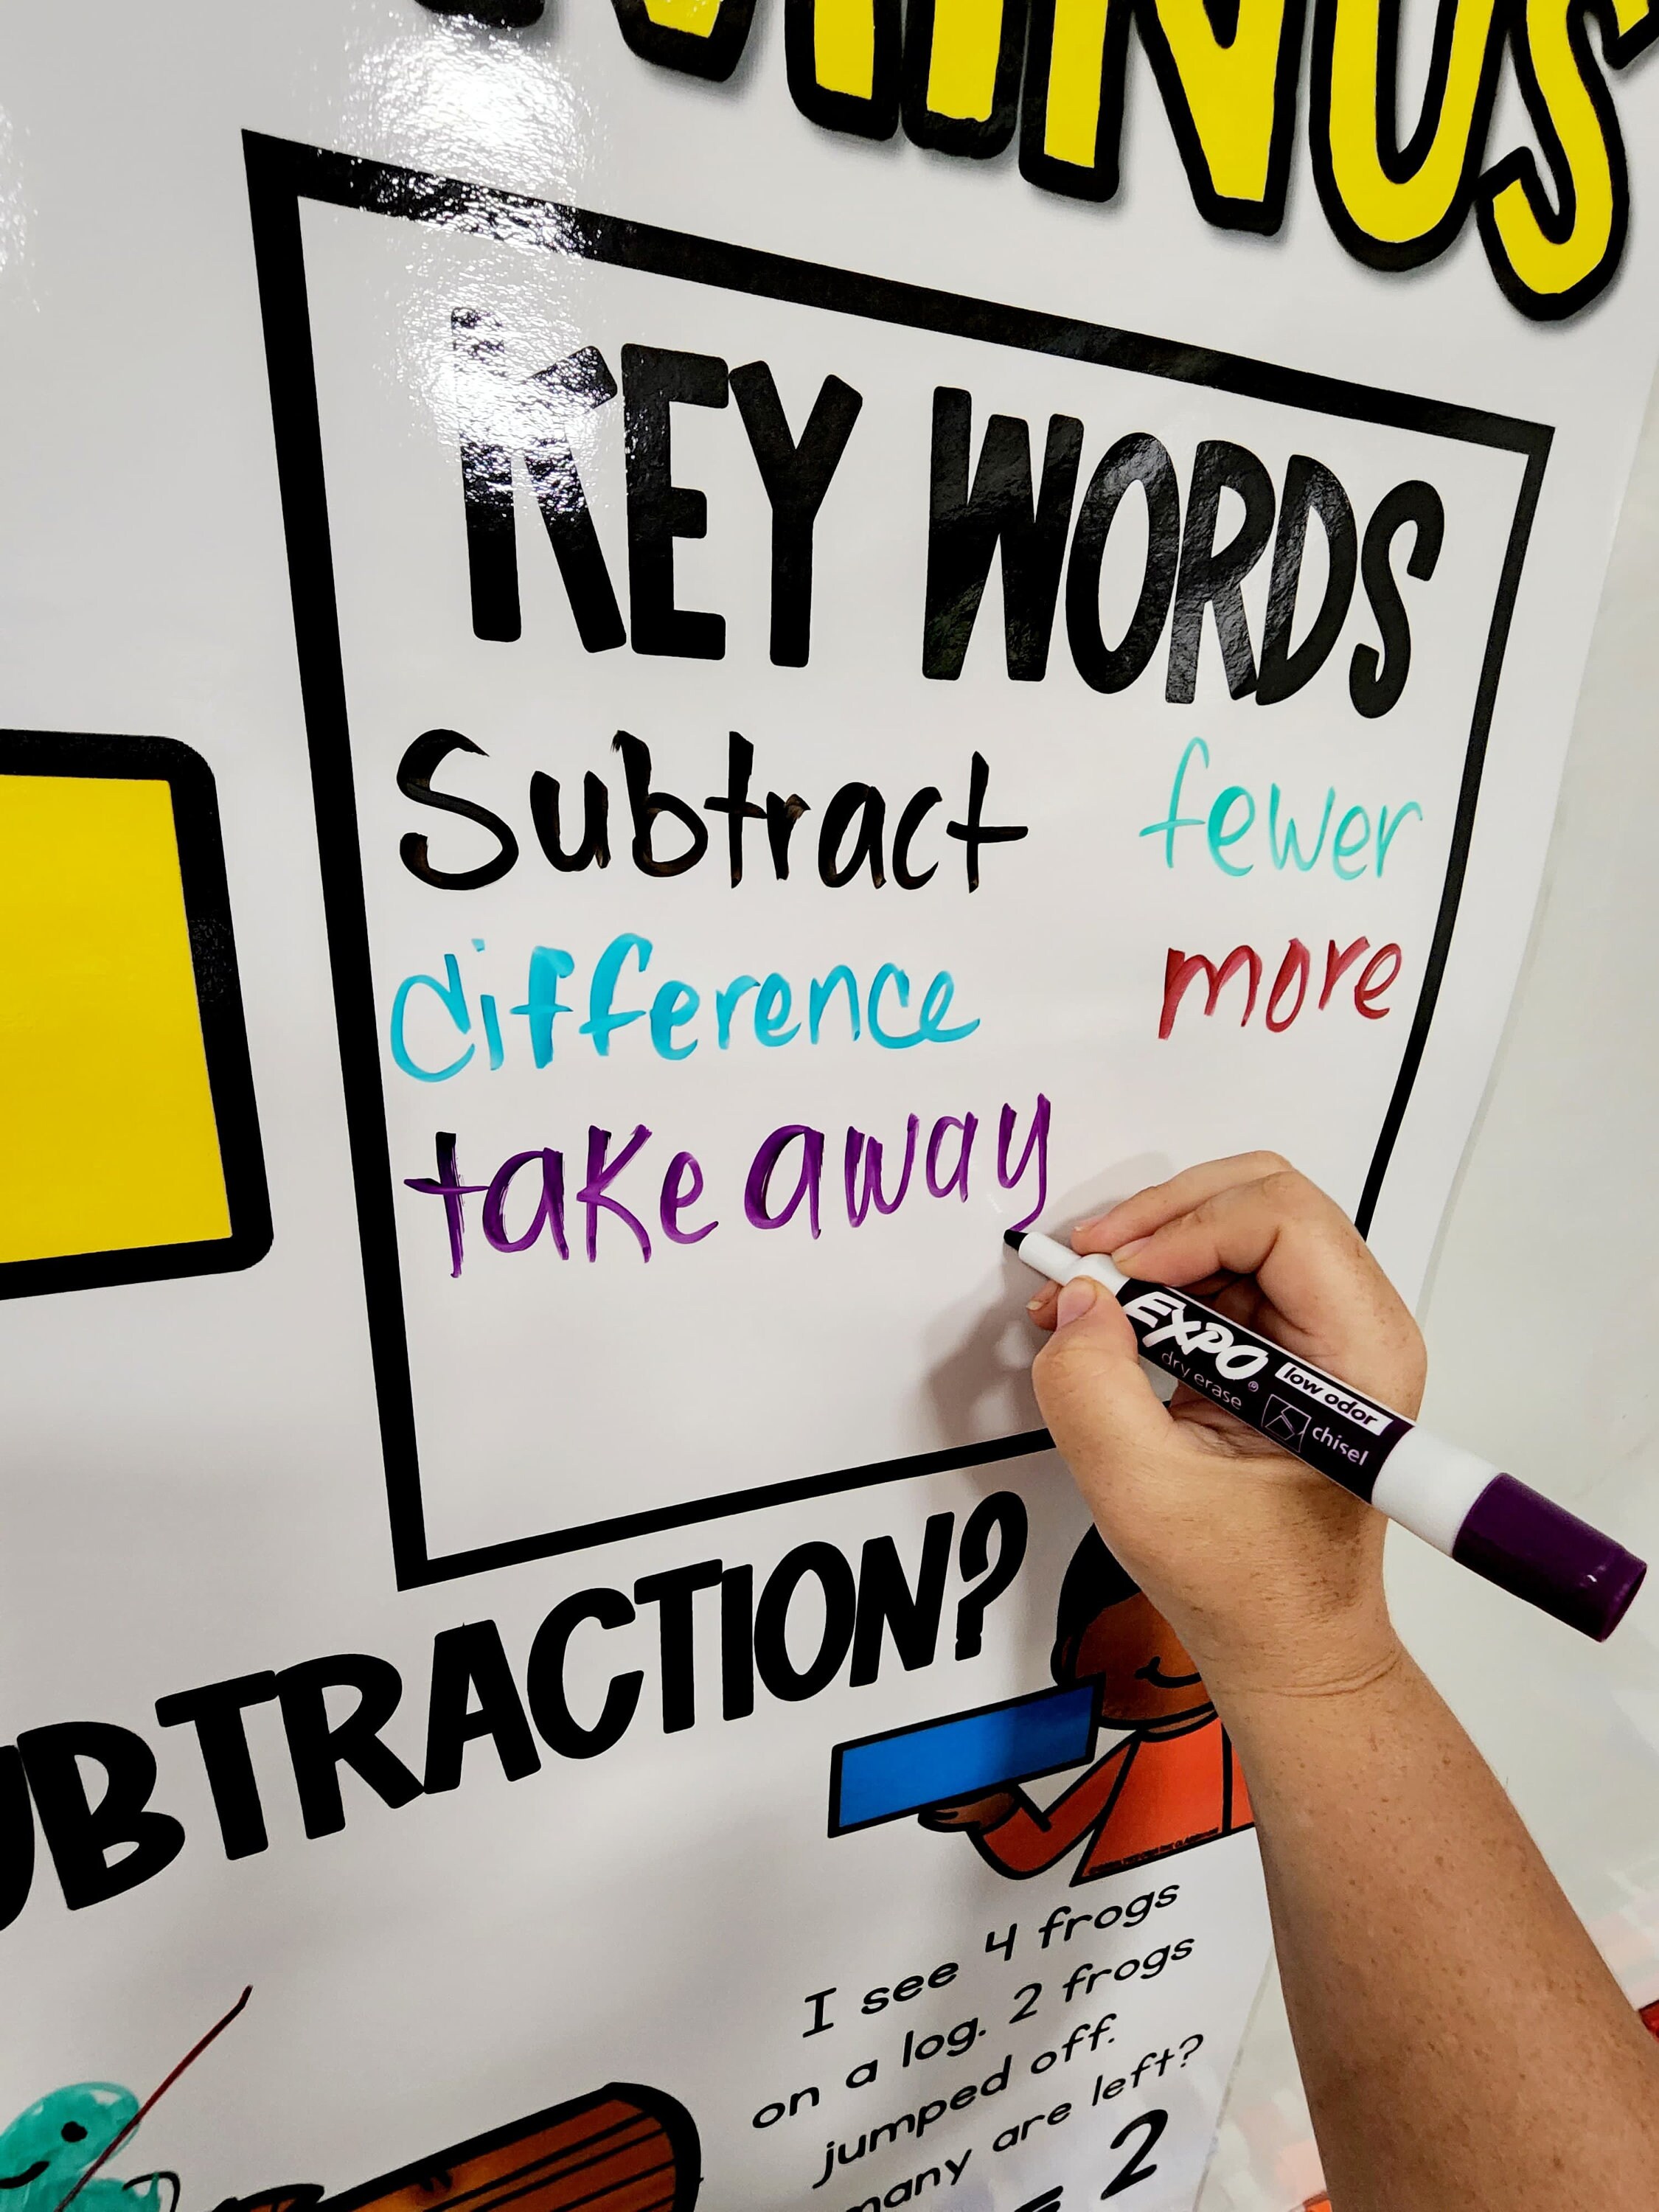 MINUS
KEY WORDS
Subtract fewer
difference more
take away
EXPO
dry erase
low odor
chisel
UBTRACTION?
I see 4 frogs
on a log. 2 frogs
jumped off.
many are left?
= 2